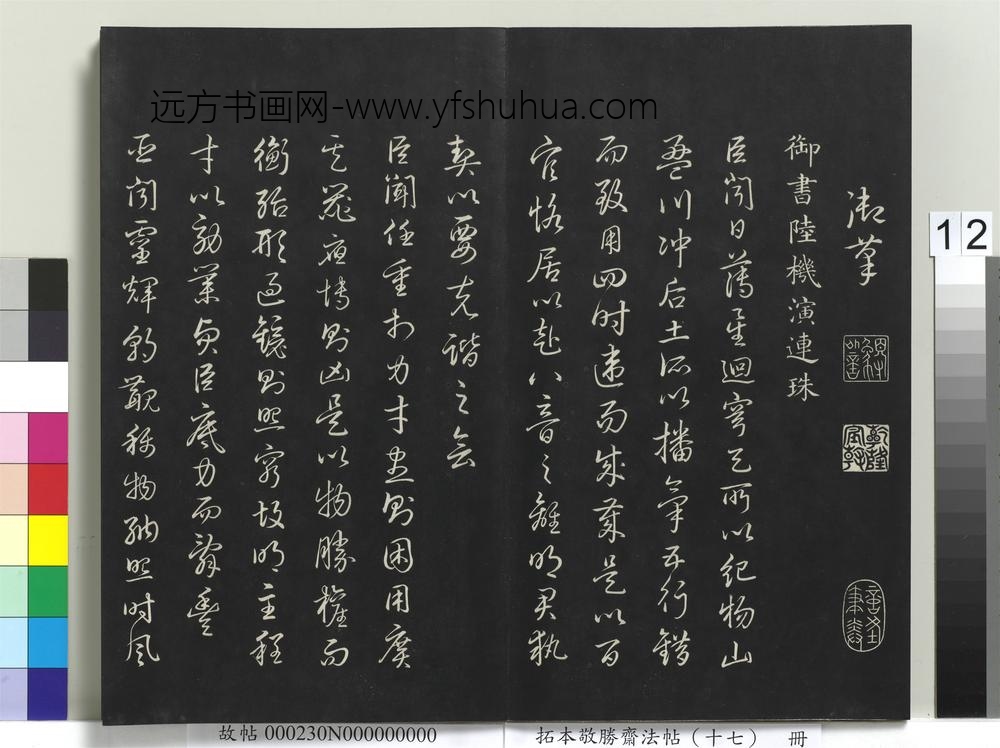 远方书画网-www.yfshuhua.com
御筆
御書陸機演連珠
臣聞日薄星迴穹天所以紀物山
盈川沖后土所以播氣五行錯
而致用四時違而成歲是以百
官恪居以赴八音之離明君執
契以要克諧之會
臣聞任重於力才盡則困用廣
其器應博則凶是以物勝權而
衡殆形過鏡則照窮故明主程
才以效業貞臣底力而辭豐
臣聞靈輝朝覯稱物納照時風
12
故帖 000230N000000000
拓本敬勝齋法帖（十七） 冊